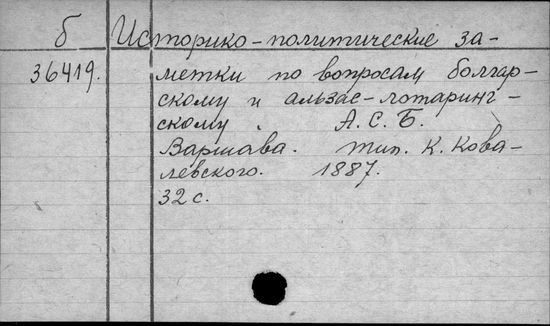 б Историко-политические за-
36419. метки по вопросам болгар-
скому и альзас-лотаринг-
скому. А. С. Б.
Варшава. Тип. К. Кова-
левского. 1887.
32 с.